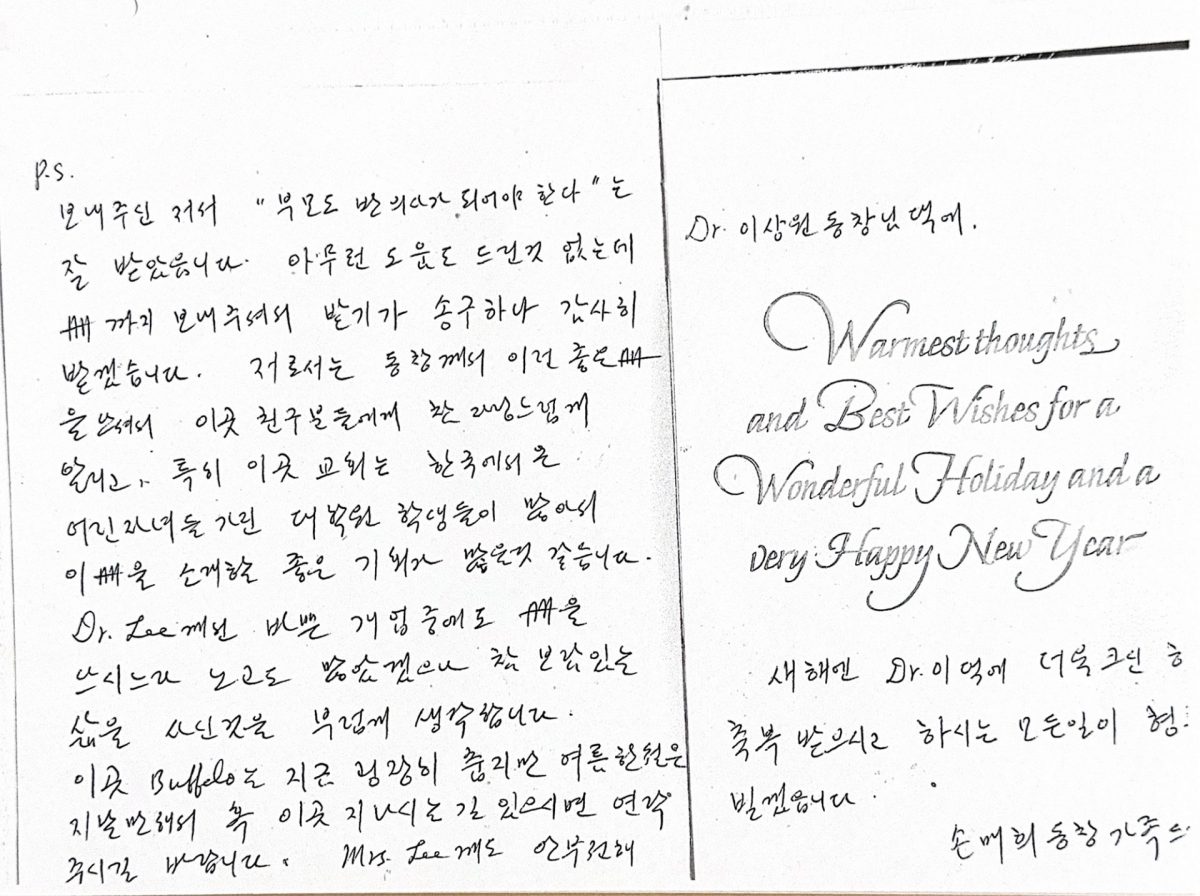 P.S.
보내주신 저서 "부모도 반의사가 되어야 한다"는
잘 받았읍니다. 아무런 도움도 드린것 없는데
冊까지 보내주셔서 받기가 송구하나 감사히
받겠습니다. 저로서는 동창께서 이런 좋은 冊
을 쓰셔서 이곳 친구분들에게 참 자랑스럽게
알리고, 특히 이곳 교회는 한국에서 온
어린자녀들 가진 대학원 학생들이 많아서
이 冊을 소개할 좋은 기회가 많을것 같습니다.
Dr. Lee께선 바쁜 개업중에도 冊을
쓰시느라 노고도 많았겠으나 참 보람있는
삶을 사신것을 부럽게 생각합니다.
이곳 Buffalo는 지금 굉장히 춥지만 여름한철은
지낼만해서 혹 이곳 지나시는 길 있으시면 연락
주시길 바랍니다. Mrs. Lee께도 안부전해
Dr. 이상원 동창님 댁에.
Warmest thoughts
and Best Wishes for a
Wonderful Holiday and a
very Happy New Year
새해엔 Dr. 이 댁에 더욱 크신
축복 받으시고 하시는 모든일이
빌겠읍니다.
손매희 동창 가족